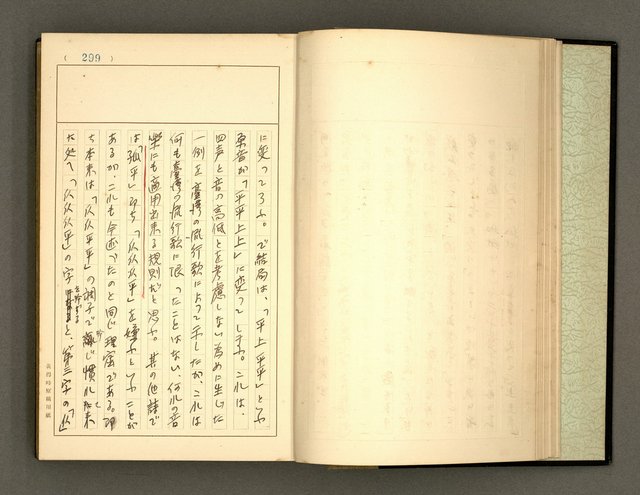 ( 299 )
に変ってゐる。で結局は、「平上平平」といふ
原音が「平平上上」に変ってしまふ。これは、
四声と音の高低とを考慮しない為めに生じた
一例を臺灣の流行歌によって示したが、これは
何も臺灣の流行歌に限ったことはない、何れの音
樂にも適用出来る規則だと思ふ。其の他詩で
は「孤平」即ち「仄仄仄平」を嫌ふといふことが
あるが、これも今述べたのと同じ理窟である。即
ち本来は「仄仄平平」の調子で吟じ慣れて来
た処へ「仄仄仄平」の字と、第三字の「仄」
原稿用紙